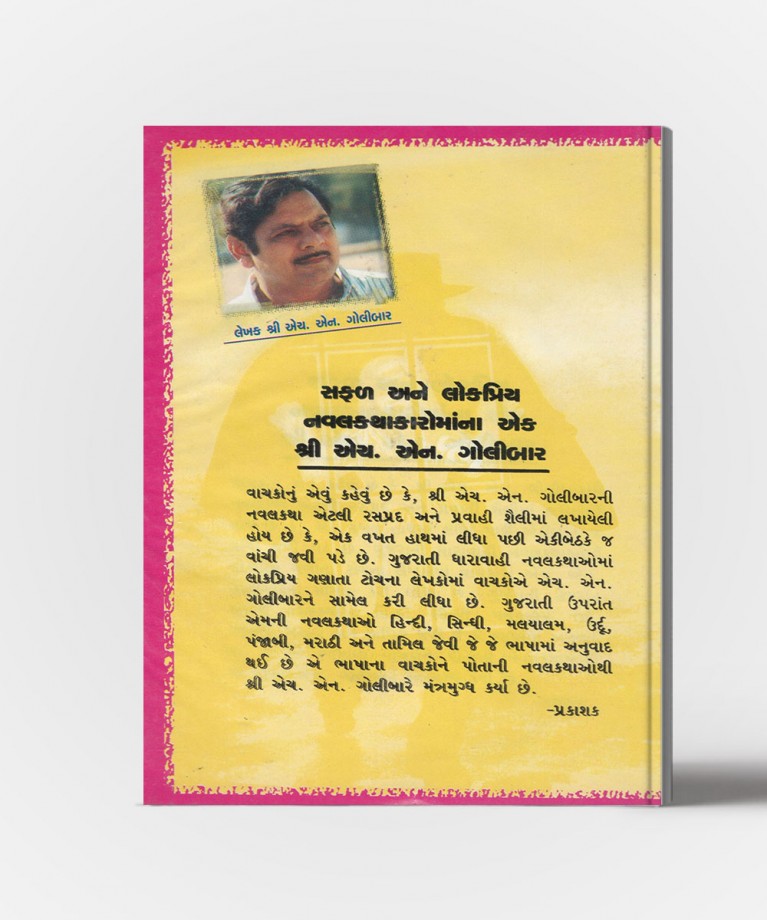 લેખક શ્રી એચ. એન. ગોલીબાર
સફળ અને લોકપ્રિય
નવલકથાકારોમાંના એક
શ્રી એચ. એન. ગોલીબાર
વાચકોનું એવું કહેવું છે કે, શ્રી એચ. એન. ગોલીબારની
નવલકથા એટલી રસપ્રદ અને પ્રવાહી શૈલીમાં લખાયેલી
હોય છે કે, એક વખત હાથમાં લીધા પછી એકીબેઠકે જ
વાંચી જવી પડે છે. ગુજરાતી ધારાવાહી નવલકથાઓમાં
લોકપ્રિય ગણાતા ટોચના લેખકોમાં વાચકોએ એચ. એન.
ગોલીબારને સામેલ કરી લીધા છે. ગુજરાતી ઉપરાંત
એમની નવલકથાઓ હિન્દી, સિન્ધી, મલયાલમ, ઉર્દૂ,
પંજાબી, મરાઠી અને તામિલ જેવી જે જે ભાષામાં અનુવાદ
થઈ છે એ ભાષાના વાચકોને પોતાની નવલકથાઓથી
શ્રી એચ. એન. ગોલીબારે મંત્રમુગ્ધ કર્યા છે.
-પ્રકાશક